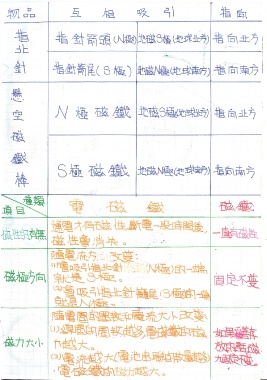 物品 互相吸引 指向
指北針 指針箭頭(N極) 地磁S極(地球北方) 指向北方
指針箭尾(S極) 地磁N極(地球南方) 指向南方
懸空磁鐵棒 N極磁鐵 地磁S極(地球北方) 指向北方
S極磁鐵 地磁N極(地球南方) 指向南方
種類 電磁鐵 磁鐵
項目
磁性的有無 通電才有磁性,斷電一段時間後,
磁性會消失。
一直有磁性
磁極方向 隨電流方向改變:
(1)會吸引指北針箭頭(N極)的一端
就是S極。
(2)會吸引指北針箭尾(S極)的一端
就是N極。
固定不變
磁力大小 隨線圈的圈數或電流大小改變:
(1)線圈的圈數越多,電磁鐵的磁力
越大。
(2)電流越大(電池串聯
電磁鐵的磁力越大。